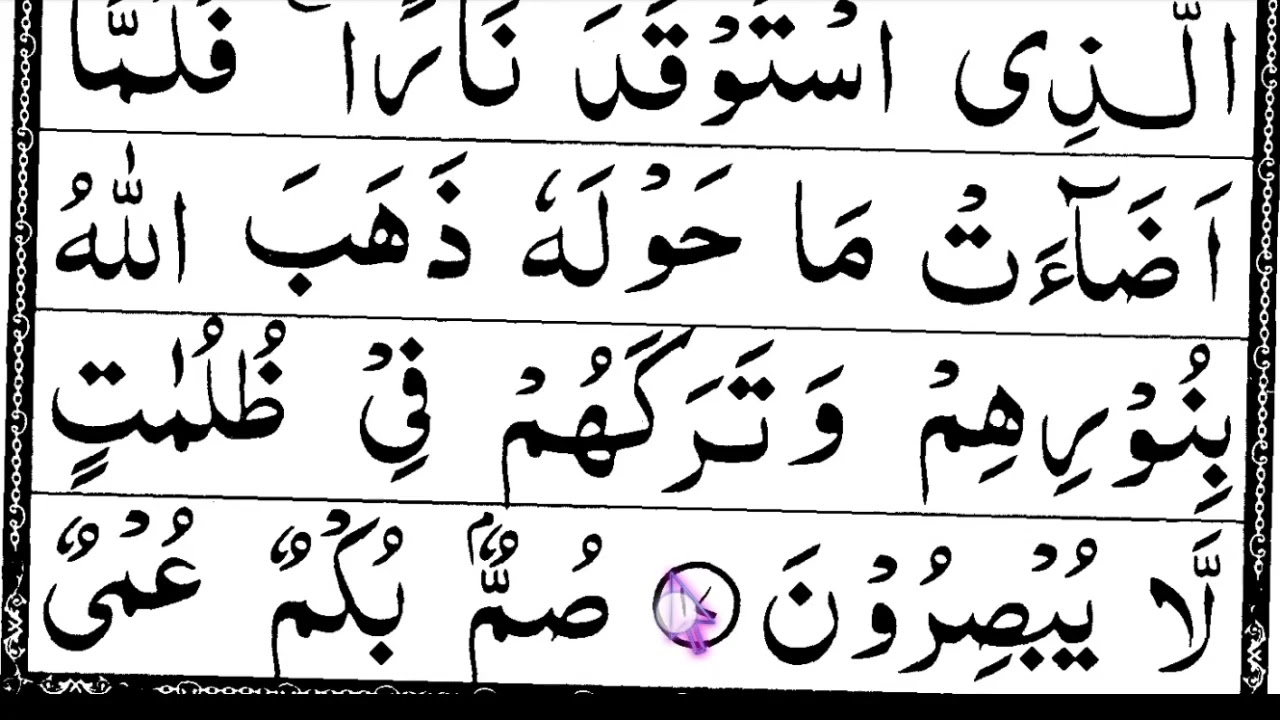 الَّذِی اسْتَوْقَدَ نَارًا ۚ فَلَمَّاۤ
اَضَآءَتْ مَا حَوْلَهٗ ذَهَبَ اللّٰهُ
بِنُوْرِهِمْ وَ تَرَكَهُمْ فِیْ ظُلُمٰتٍ
لَّا یُبْصِرُوْنَ صُمٌّۢ بُكْمٌ عُمْیٌ